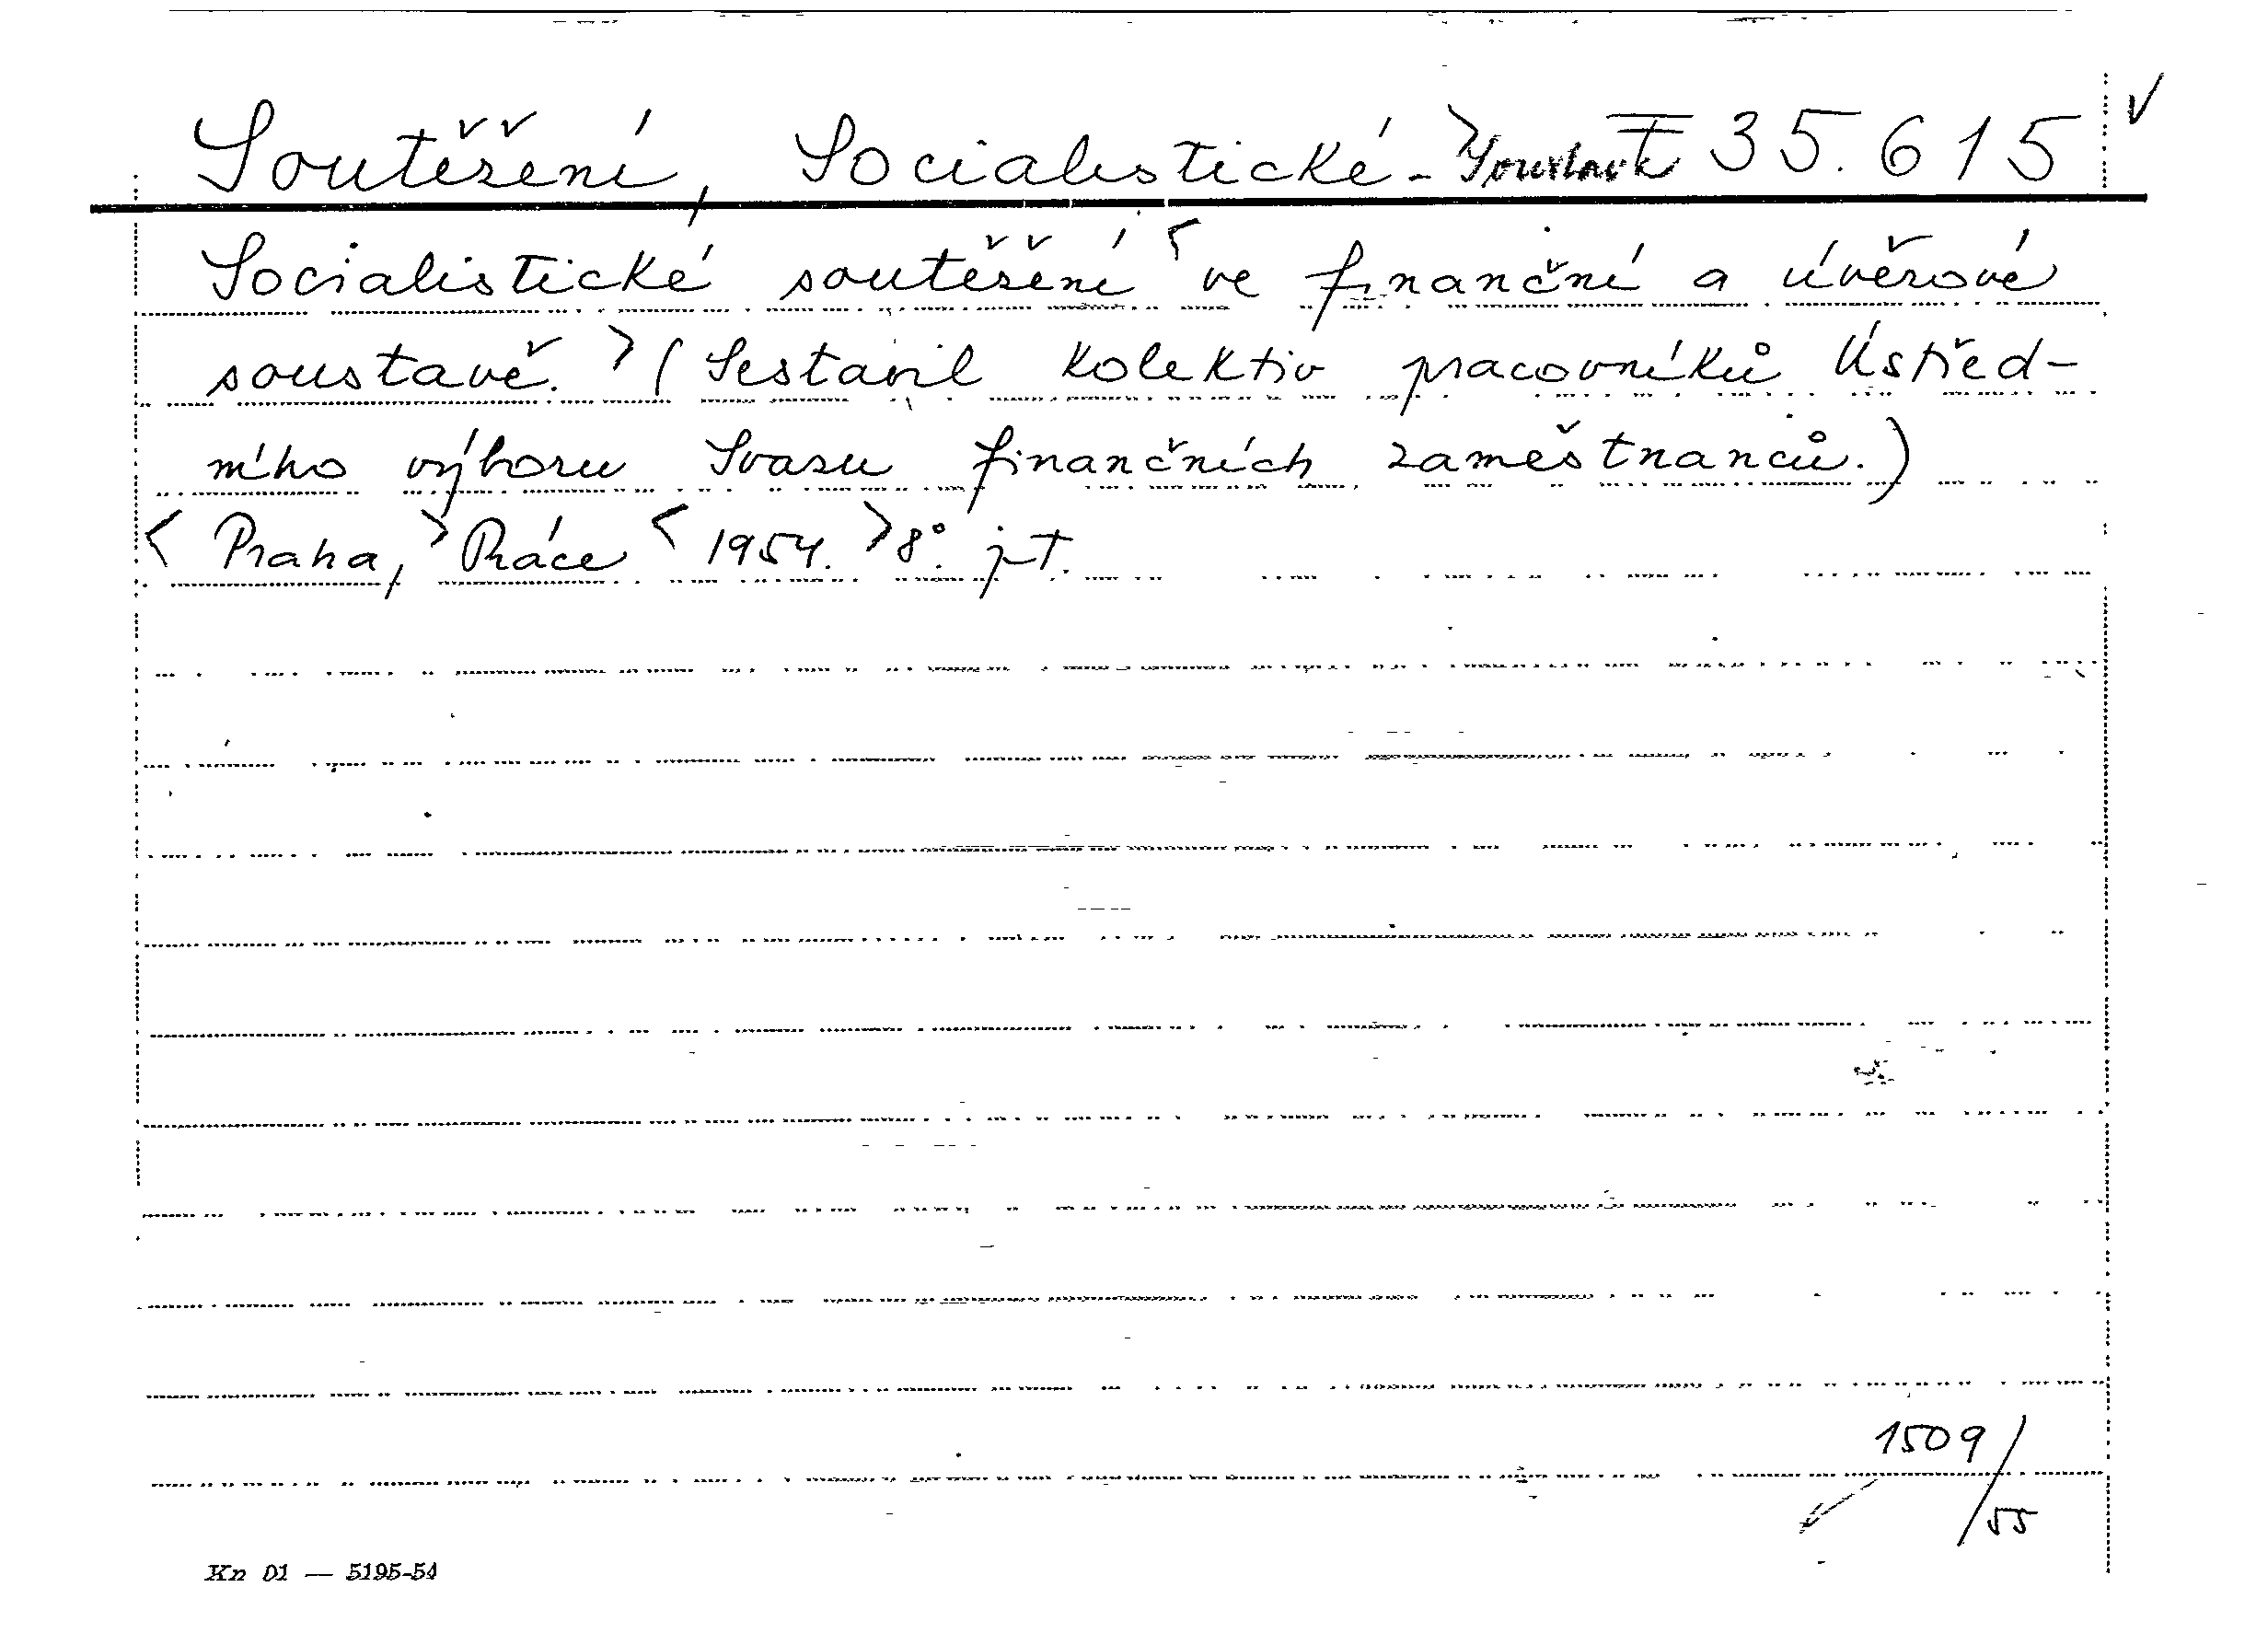 Soutěžení, Socialistické - I 35.615 √
Socialistické soutěžení < ve finanční a úvěrové
soustavě. > (Sestavil kolektiv pracovníků Ústřed-
ního výboru Svazu finančních zaměstnanců.)
< Praha, > Práce < 1954. > 8°. j-t.
1509/
55
Kn 01 — 5195-54